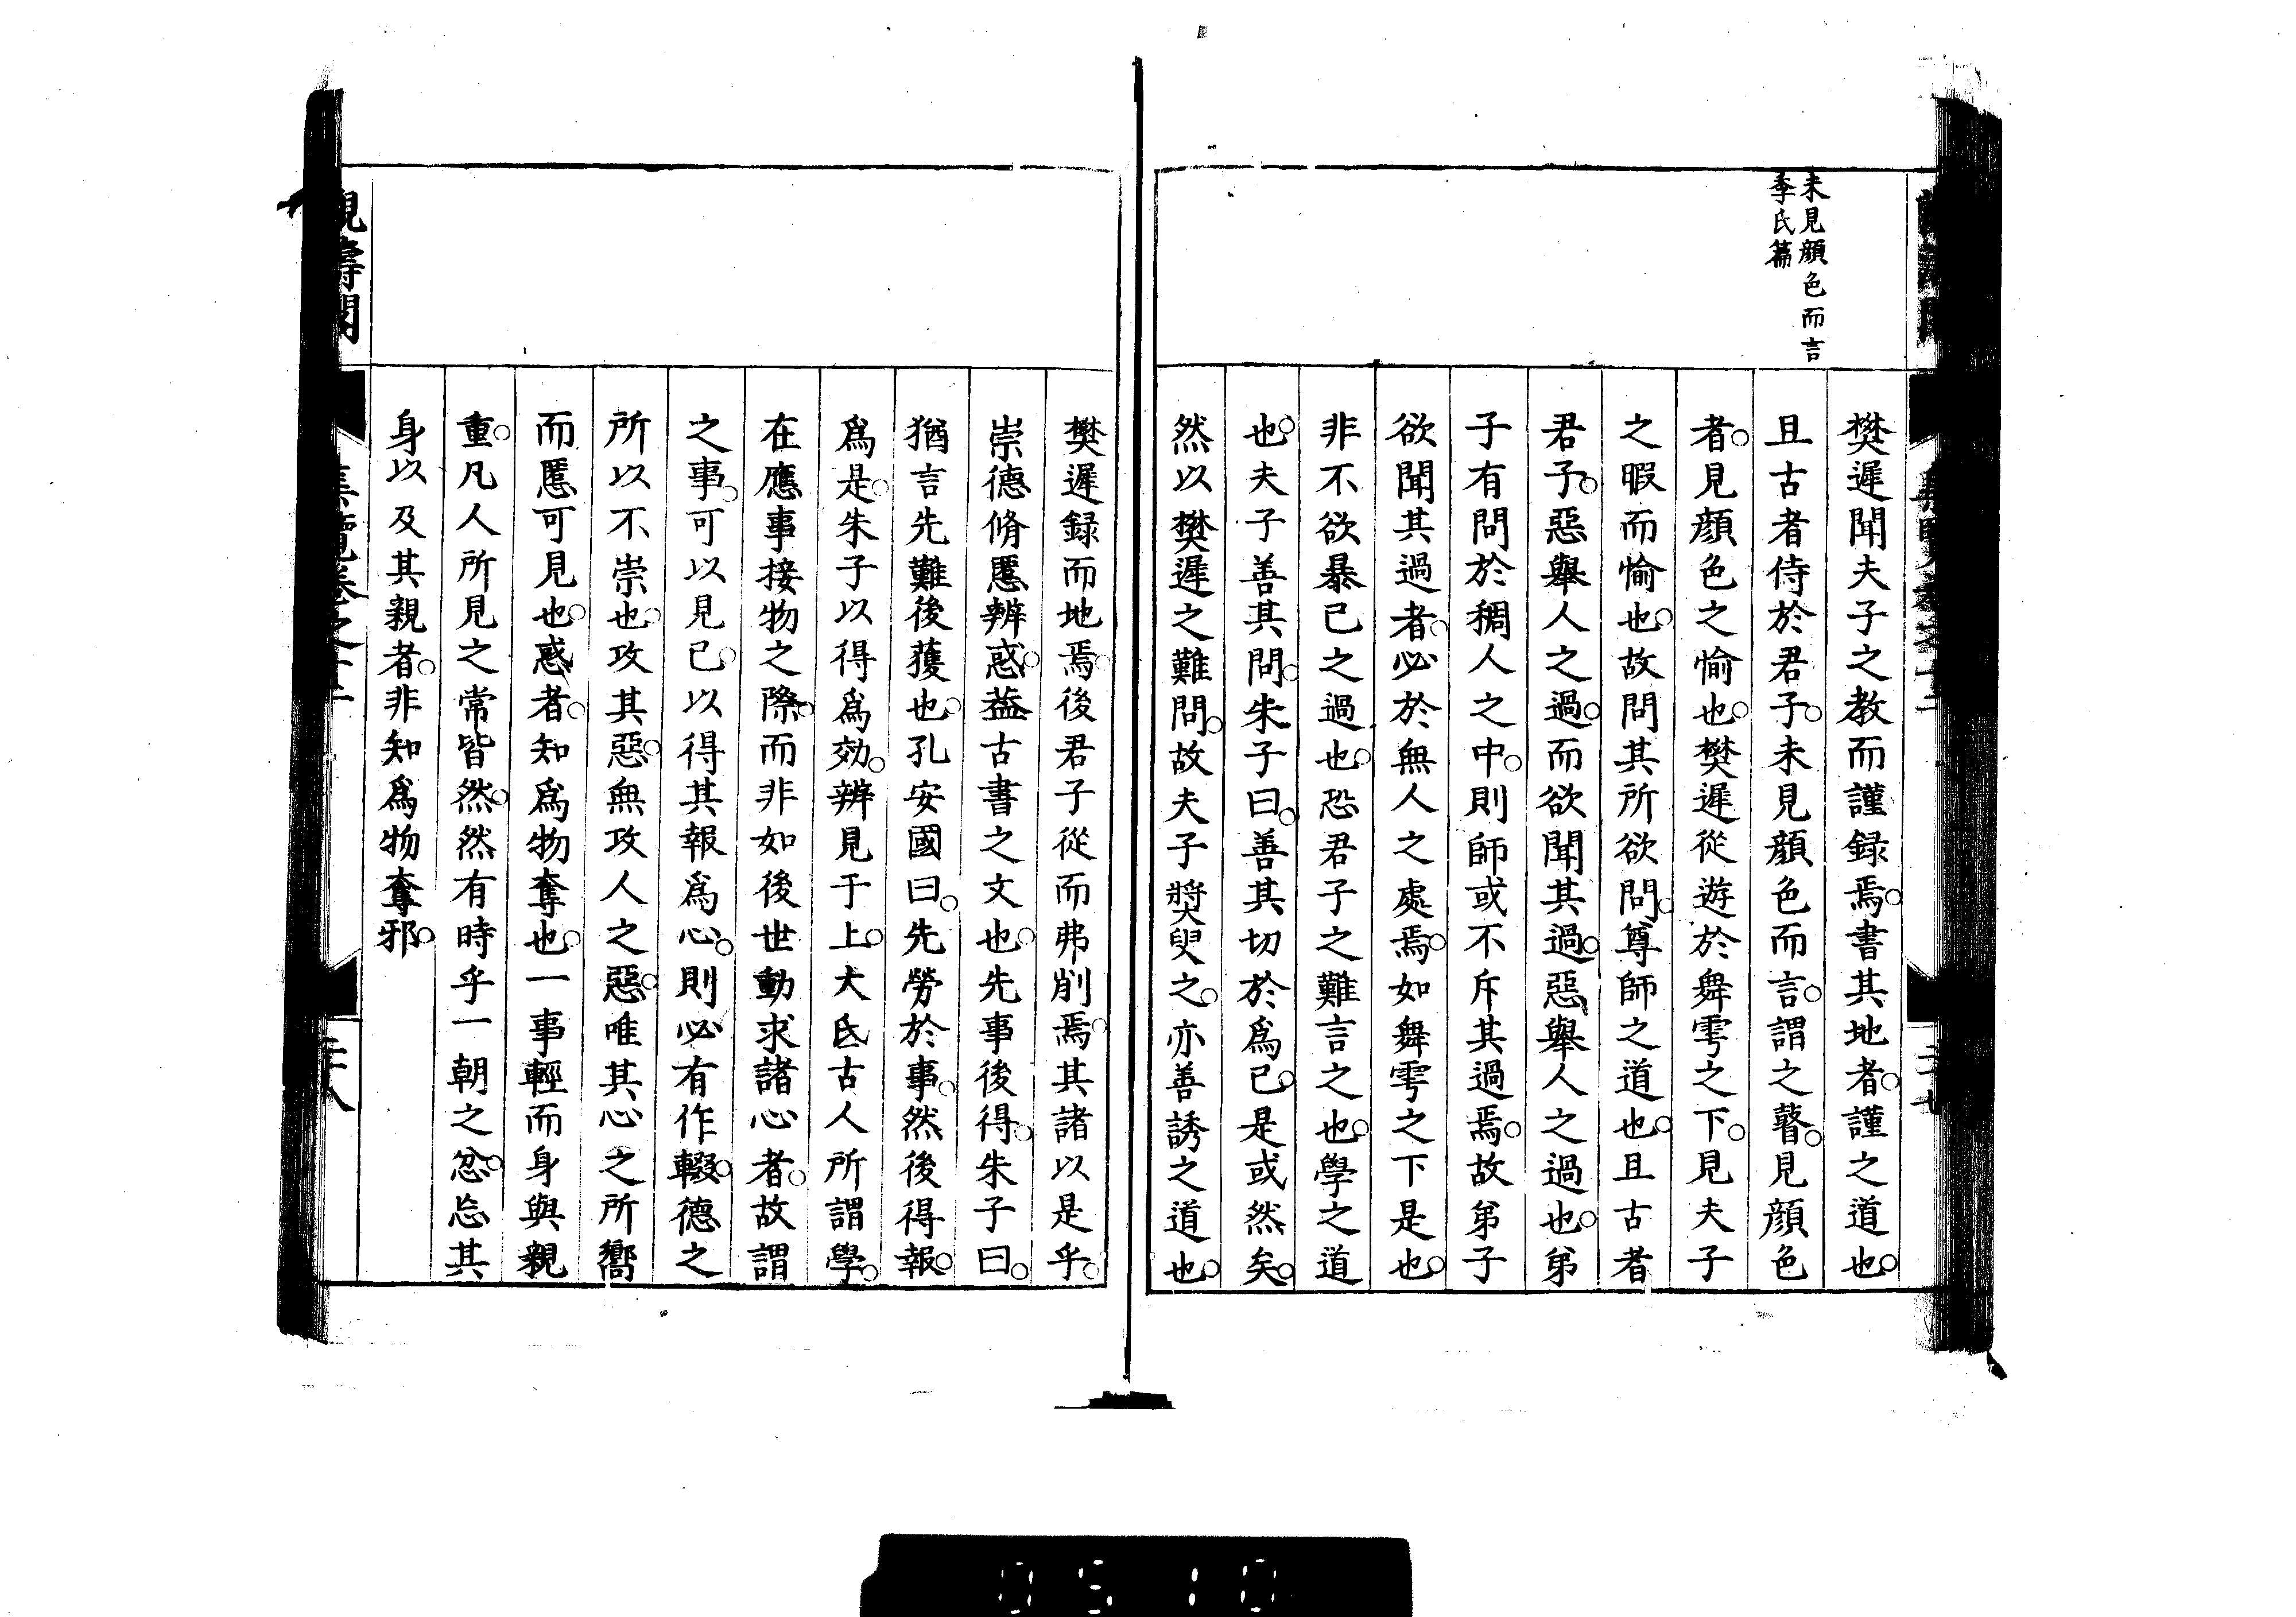 未見顔色而言
季氏篇
樊遲聞夫子之教而謹録焉。書其地者。謹之道也。
且古者侍於君子。未見顔色而言。謂之瞽。見顔色
者。見顔色之愉也。樊遲從遊於舞雩之下。見夫子
之暇而愉也。故問其所欲問。尊師之道也。且古者
君子。惡舉人之過。而欲聞其過。惡舉人之過也。弟
子有問於稠人之中。則師或不斥其過焉。故弟子
欲聞其過者。必於無人之處焉。如舞雩之下是也。
非不欲暴已之過也。恐君子之難言之也。學之道
也。夫子善其問。朱子曰。善其切於爲已。是或然矣。
然以樊遲之難問。故夫子奬臾之。亦善誘之道也。
樊遲録而地焉。後君子從而弗削焉。其諸以是乎。
崇德脩慝辨惑。葢古書之文也。先事後得。朱子曰。
猶言先難後獲也。孔安國曰。先勞於事。然後得報。
爲是。朱子以得爲効。辨見于上。大氐古人所謂學。
在應事接物之際。而非如後世動求諸心者。故謂
之事。可以見已。以得其報爲心。則必有作輟。德之
所以不崇也。攻其惡。無攻人之惡。唯其心之所嚮
而慝可見也。惑者。知爲物奪也。一事輕而身與親
重。凡人所見之常皆然。然有時乎一朝之忿。忘其
身以及其親者。非知爲物奪邪。
集覽卷之十二
0510